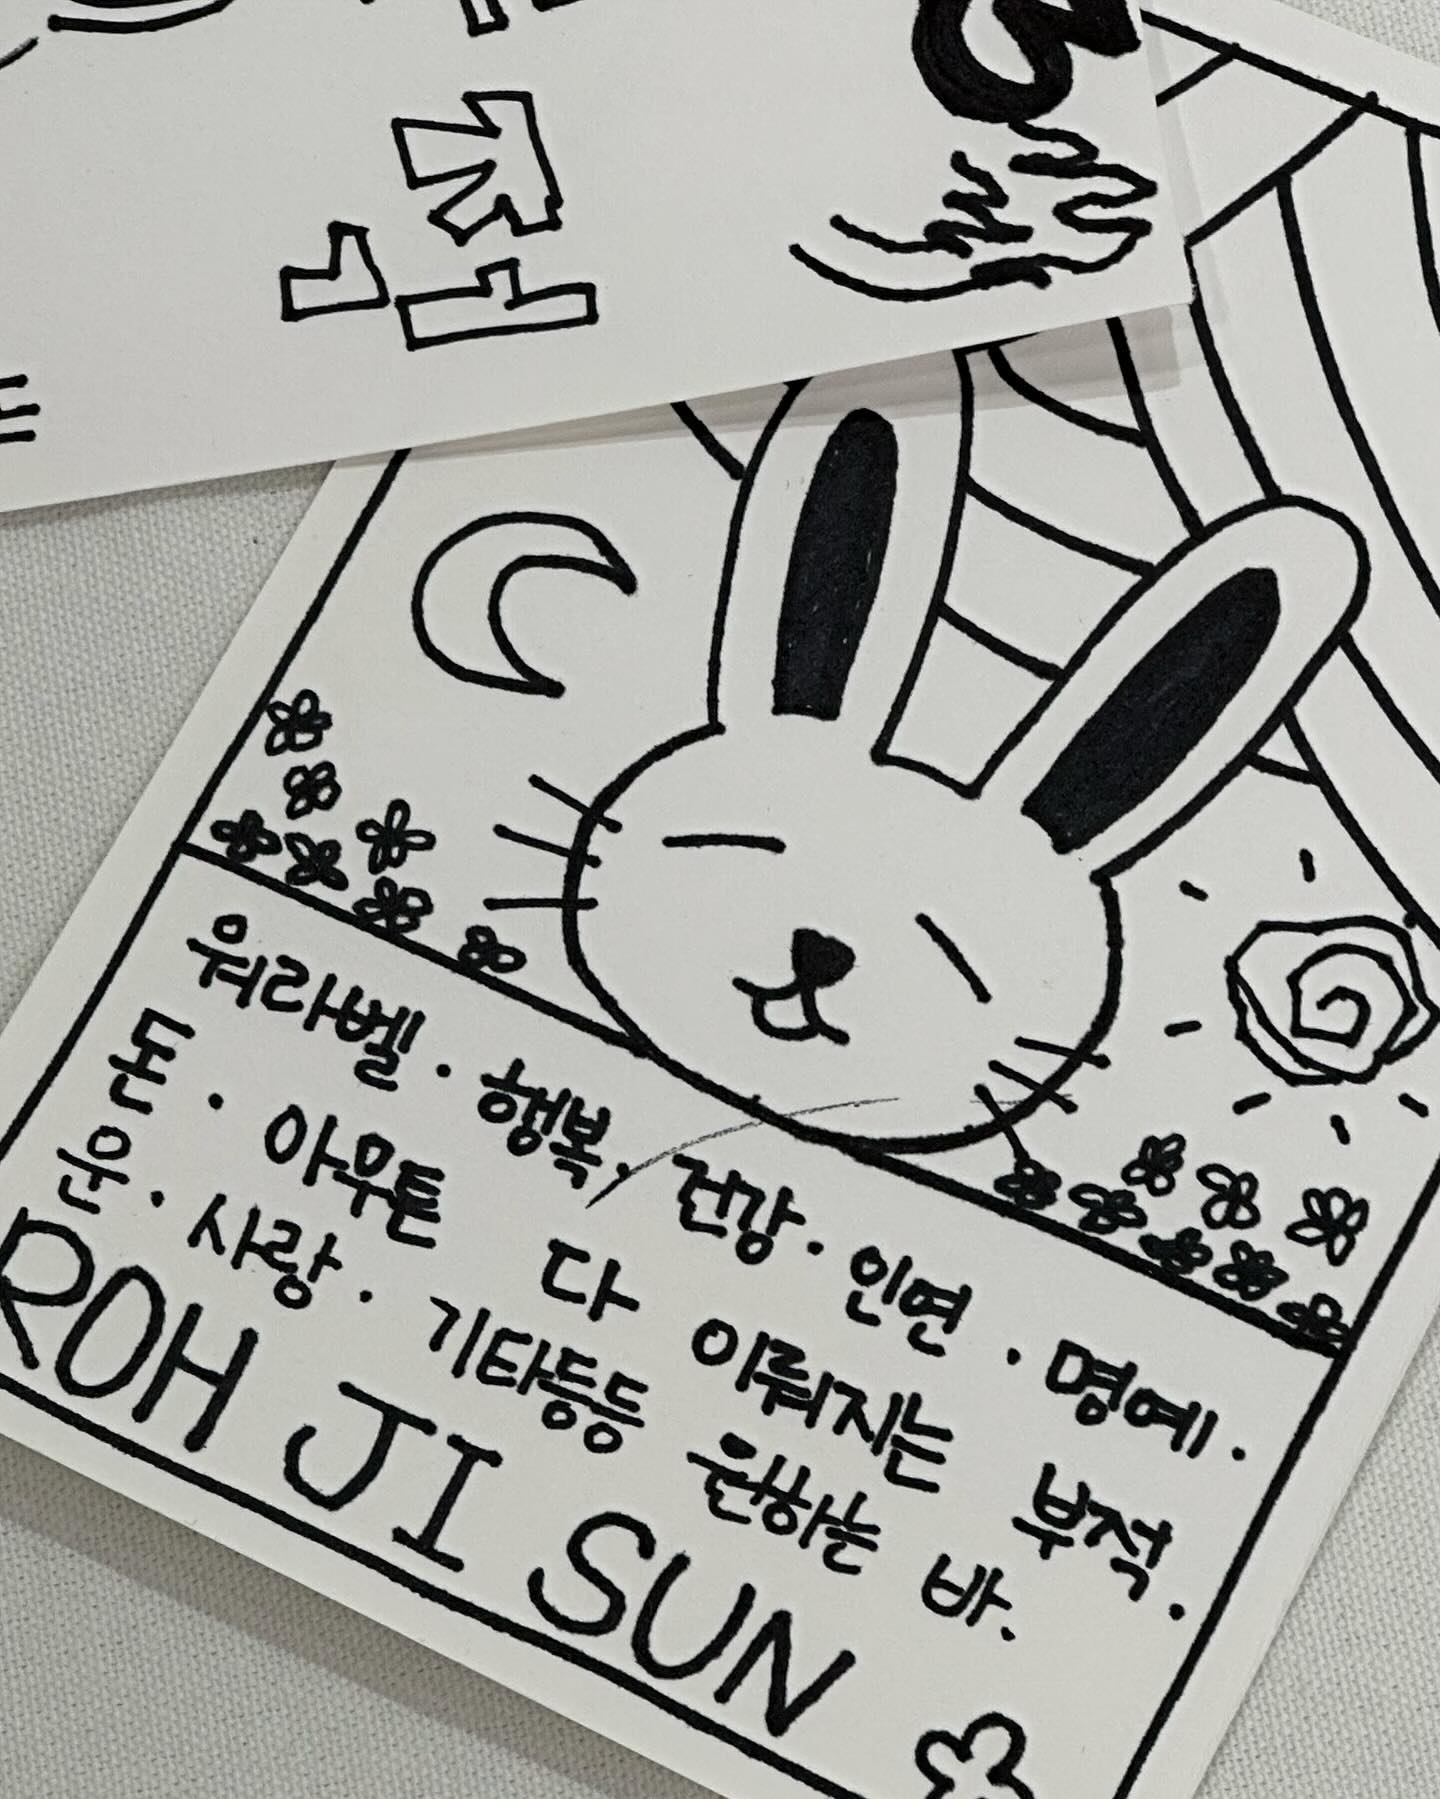 워라벨 · 행복 · 건강 · 인연 · 명예 ·
돈 · 아무튼 다 이뤄지는 부적 ·
운 · 사랑 · 기타등등 원하는 바.
ROH JI SUN